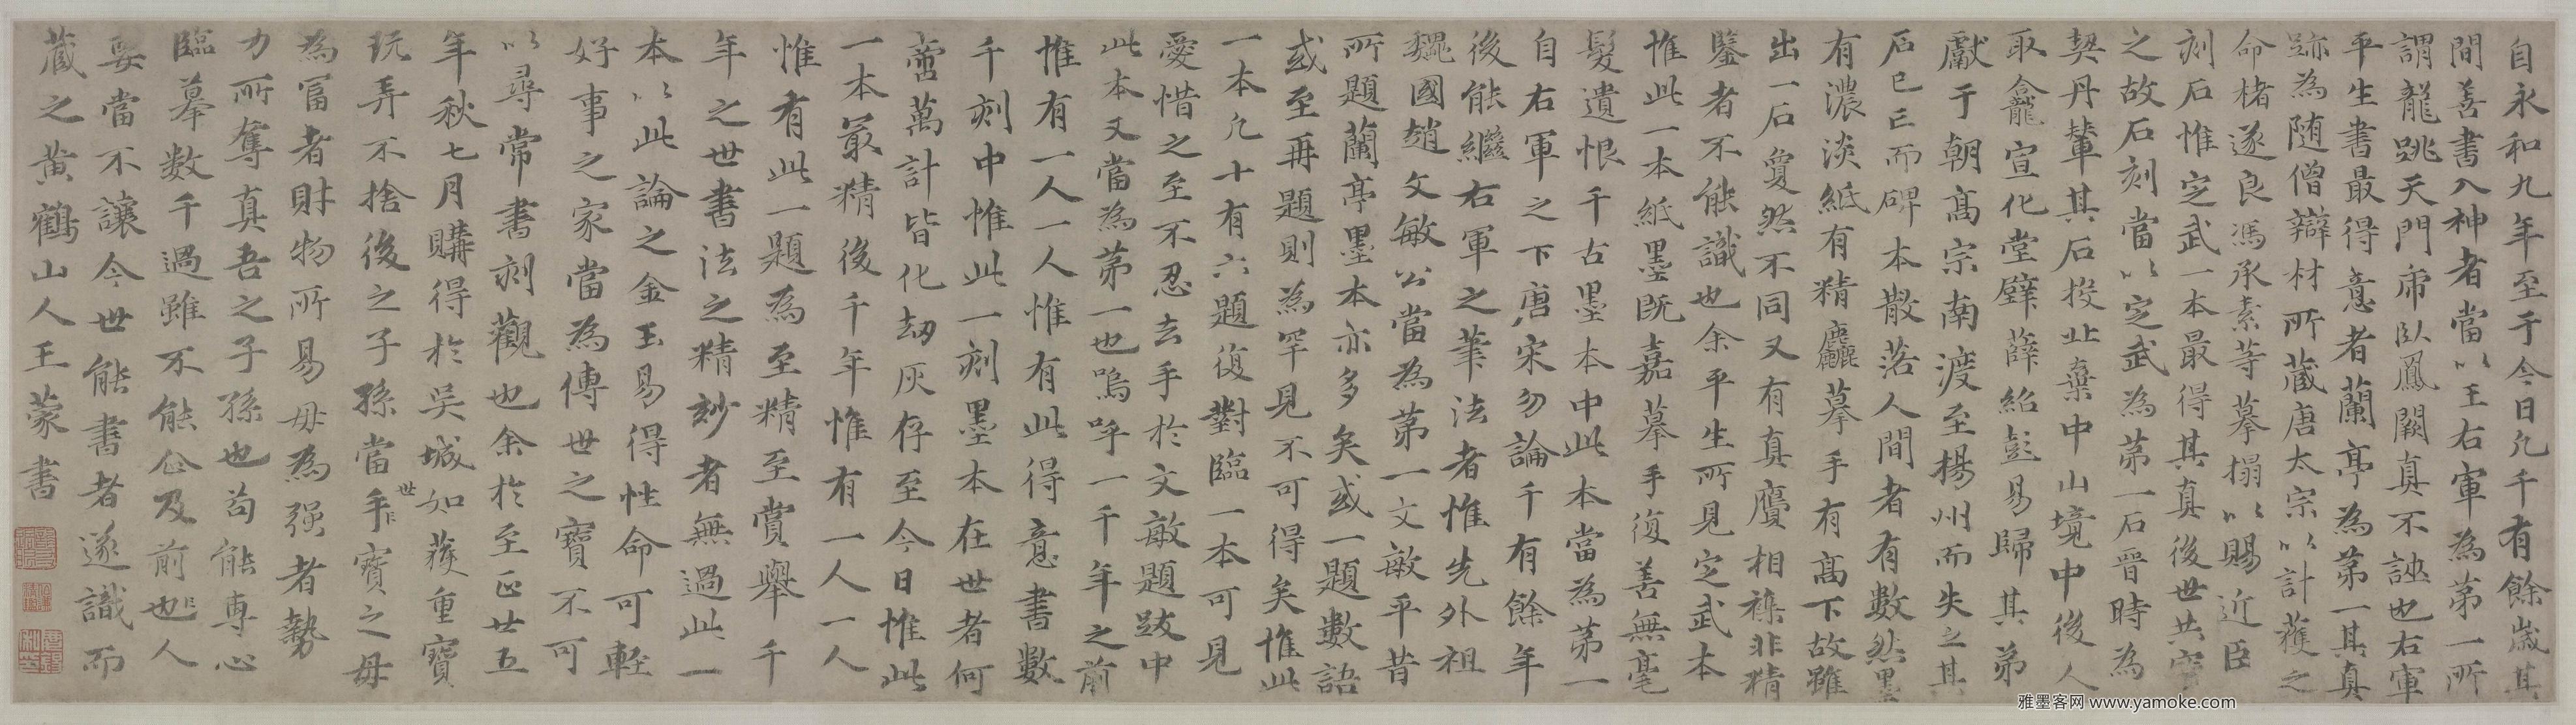 自永和九年至于今日凡千有餘歲其
間善書入神者當以王右軍為第一所
謂龍跳天門帍臥鳳闕真不誣也右軍
平生書最得意者蘭亭為第一其真
跡為隨僧辯材所藏唐太宗以計獲之
命楮遂良馮承素等摹搨以賜近臣
刻石惟定武一本最得其真後世共寶
之故石刻當以定武為第一石晉時為
契丹輦其石投此棄中山境中後人
取龕宣化堂壁薛紹彭易歸其弟
獻于朝高宗南渡至揚州而失之其
石已亡而碑本散落人間者有數然墨
有濃淡紙有精麤摹手有高下故雖
出一石敻然不同又有真贗相襍非精
鑒者不能識也余平生所見定武本
惟此一本紙墨既嘉摹手復善無毫
髮遺恨千古墨本中此本當為第一
自右軍之下唐宋勿論千有餘年
後能繼右軍之筆法者惟先外祖
魏國趙文敏公當為第一文敏平昔
所題蘭亭墨本亦多矣或一題數語
或至再題則為罕見不可得矣惟此
一本凡十有六題復對臨一本可見
愛惜之至不忍去手於文敏題跋中
此本又當為第一也嗚呼一千年之前
惟有一人一人惟有此得意書數
千刻中惟此一刻墨本在世者何
啻萬計皆化劫灰存至今日惟此
一本最精後千年惟有一人一人
惟有此一題為至精至賞舉千
年之世書法之精妙者無過此一
本以此論之金玉易得性命可輕
好事之家當為傳世之寶不可
以尋常書刻觀也余於至正廿五
年秋七月購得於吳城如獲重寶
玩弄不捨後之子孫當世手寶之毋
為富者財物所易毋為強者勢
力所奪真吾之子孫也苟能專心
臨摹數千過雖不能企及前也人
要當不讓今世能書者遂識而
藏之黃鶴山人王蒙書
雅墨客网 www.yamoke.com